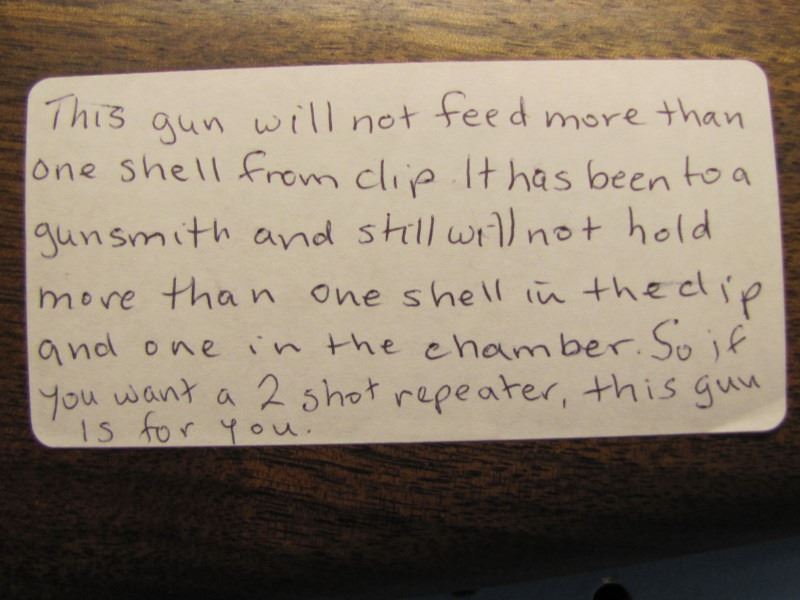 This gun will not feed more than
one shell from clip. It has been to a
gunsmith and still will not hold
more than one shell in the clip
and one in the chamber. So if
you want a 2 shot repeater, this gun
is for you.